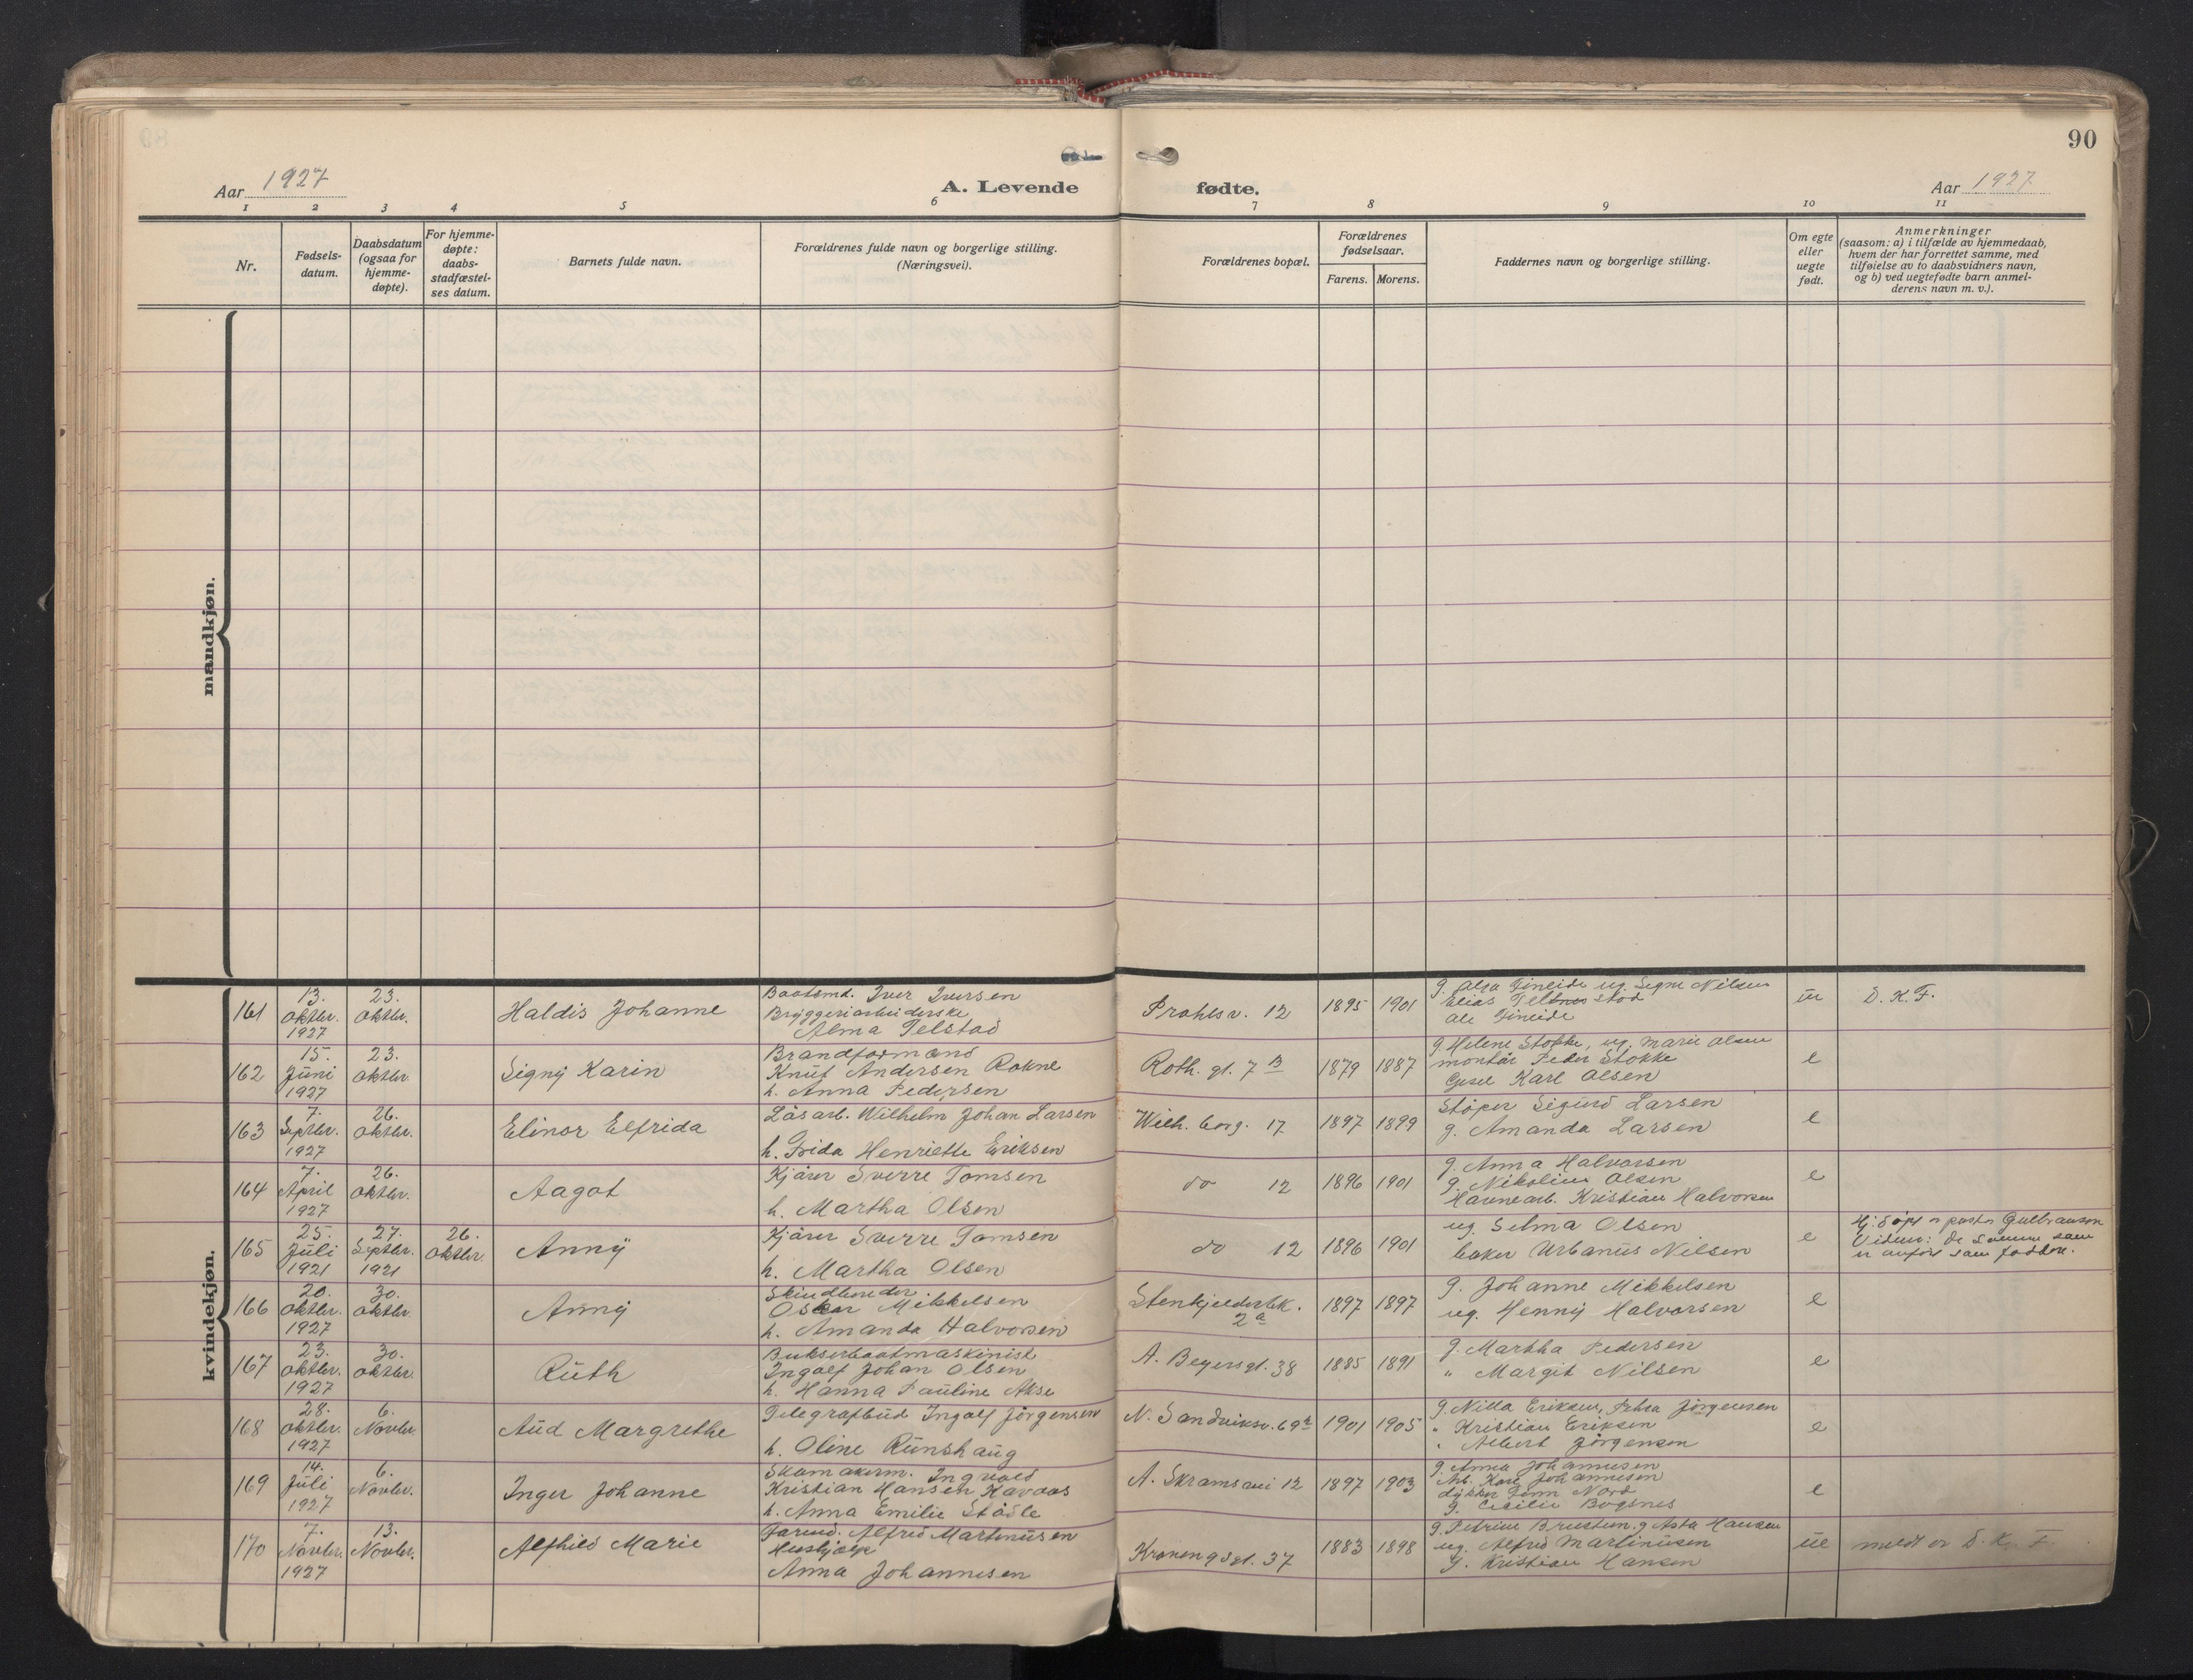 90
Aar 1927
A. Levende
fødte.
Aar 1927
1 2 3 4 5 6 7 8 9 10 11
Nr.
Fødsels-
datum.
Daabsdatum
(ogsaa for
hjemme-
døpte).
For hjemme-
døpte:
daabs-
stadfæstel-
ses datum.
Barnets fulde navn.
Forældrenes fulde navn og borgerlige stilling.
(Næringsvei).
Forældrenes bopæl.
Forældrenes
fødselsaar.
Farens. Morens.
Faddernes navn og borgerlige stilling.
Om egte
eller
uegte
født.
Anmerkninger
(saasom: a) i tilfælde av hjemmedaab,
hvem der har forrettet samme, med
tilføielse av to daabsvidners navn,
og b) ved uegtefødte barn anmel-
derens navn m. v.).
mandkjøn.
kvindekjøn.
161
13.
Oktbr.
1927
23.
Oktbr.
Haldis Johanne
Baatsmd. Iver Iversen
Bryggeriarbeiderske
Alma Telstad
Prahlsv. 12
1895
1901
Signe Nilsen
Elias
Ole
D. K. F.
162
15.
Juni
1927
23.
Oktbr.
Signy Karin
Brandformand
Knut Andersen Rokne
h. Anna Pedersen
Roth. gt. 7 B
1879
1887
g. Helene Stokke, ug. Marie Olsen
montør Peder Stokke
Karl Olsen
e
163
7.
Septbr.
1927
26.
Oktbr.
Elinor Elfrida
Løsarb. Wilhelm Johan Larsen
h. Frida Henriette Eriksen
Wilh. borg. 17
1897
1899
Støper Sigurd Larsen
g. Amanda Larsen
e
164
7.
April
1927
26.
Oktbr.
Aagot
Kjører Sverre Tomsen
h. Martha Olsen
do 12
1896
1901
g. Anna Halvorsen
g. Nikoline Olsen
Havnearb. Kristian Halvorsen
e
165
25.
Juli
1921
27.
Septbr.
1921
26.
Oktbr.
Anny
Kjører Sverre Tomsen
h. Martha Olsen
do 12
1896
1901
ug. Selma Olsen
baker Urbanus Nilsen
e
Hj. døpt
Vidner: de samme som
er anført som faddere.
166
20.
Oktbr.
1927
30.
Oktbr.
Anny
Skindbereder
Oskar Mikkelsen
h. Amanda Halvorsen
Stenkjelderbk.
2a
1897
1897
g. Johanne Mikkelsen
ug. Henny Halvorsen
e
167
23.
Oktbr.
1927
30.
Oktbr.
Ruth
Bukserbaatmaskinist
Ingolf Johan Olsen
h. Hanna Pauline Akse
A. Beyersgt. 38
1885
1891
g. Martha Pedersen
" Margit Nilsen
e
168
28.
Oktbr.
1927
6.
Novbr.
Aud Margrethe
Telegrafbud Ingolf Jørgensen
h. Oline Runshaug
N. Sandviksv. 69
1901
1905
g. Nilla Eriksen, Petra Jørgensen
" Kristian Eriksen
" Albert Jørgensen
e
169
14.
Juli
1927
6.
Novbr.
Inger Johanne
Skomakerm. Ingvald
Kristian Hansen Kavaas
h. Anna Emilie Stødle
A. Skramsvei 12
1897
1903
g. Anna Johannesen
Arb. Karl Johannesen
dykker Finn Nord
g. Cecilie Bogsnes
e
170
7.
Novbr.
1927
13.
Novbr.
Alfhild Marie
Alfred Martinusen
Hushjælp
Anna Johannesen
Kroneng​sgt. 37
1883
1898
g. Petrine g. Asta Hansen
ug. Alfred Martinusen
g. Kristian Hansen
ue
meldt av D. K. F.